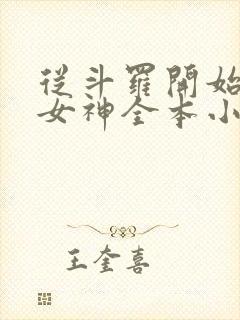 從斗羅開始
女神全本小
王奎喜